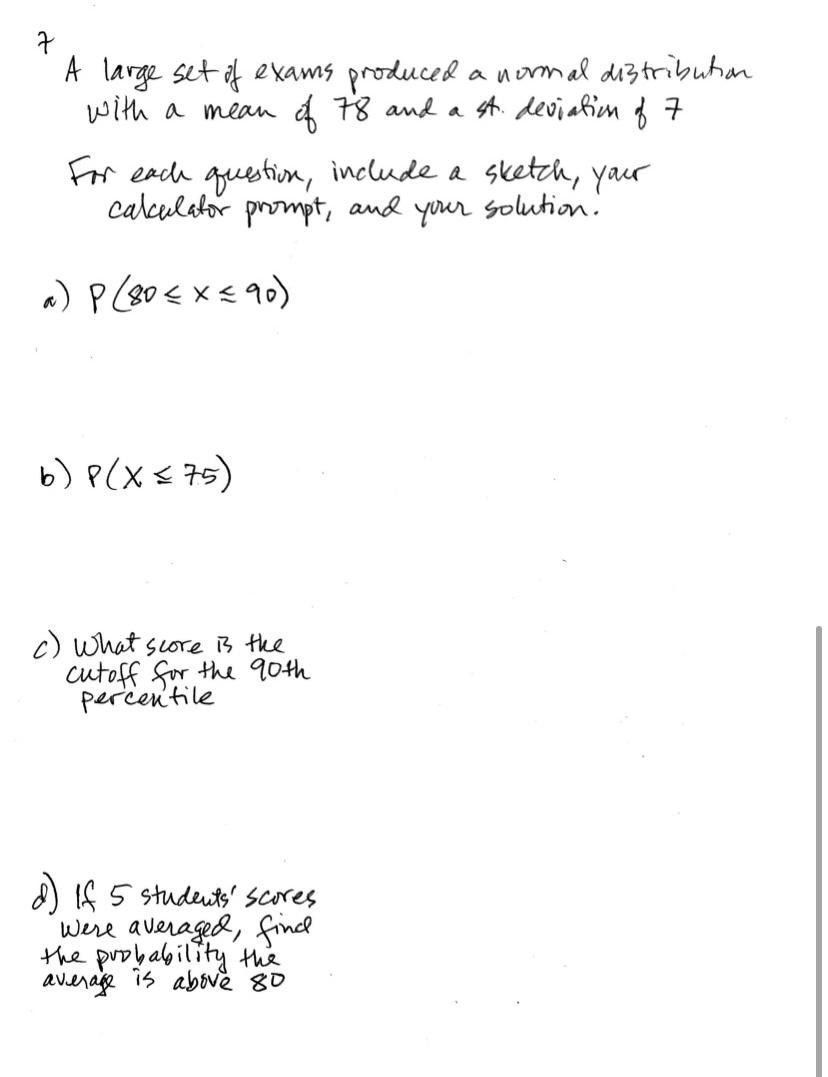 7
A large set of exams produced a normal distribution
with a mean of 78 and a st. deviation of 7
For each question, include a sketch, your
calculator prompt, and your solution.
a) P(80 ≤ x ≤ 90)
b) P(X ≤ 75)
c) What score is the
cutoff for the 90th
percentile
d) If 5 students' scores
were averaged, find
the probability the
average is above 80